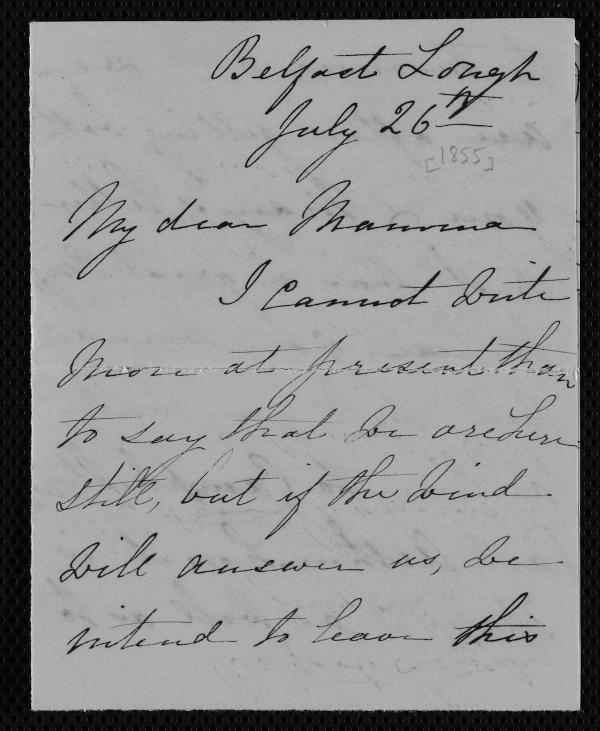 Belfast Lough
July 26th
[1855]
My dear Mamma
I cannot write
more at present than
to say that we are here
still, but if the wind
will answer us, we
intend to leave this